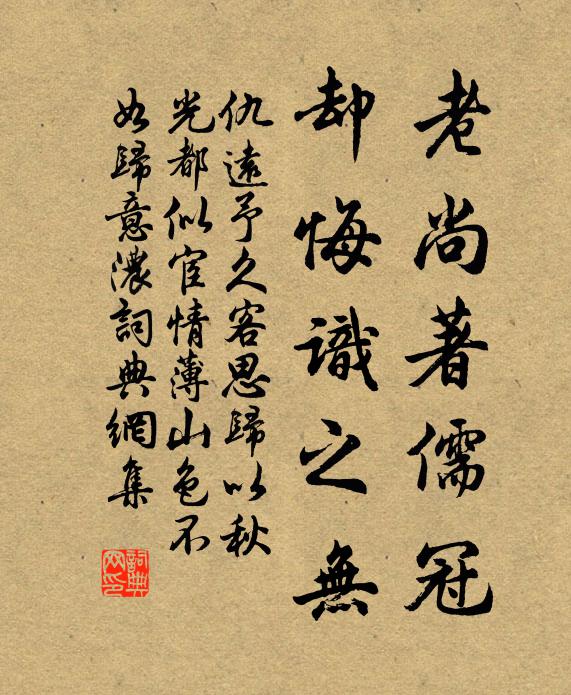 老尚著儒冠
却悔識之無
仇遠予久客思歸以秋
光都似宦情薄山色不
如歸意濃詞典網集
詞典网印